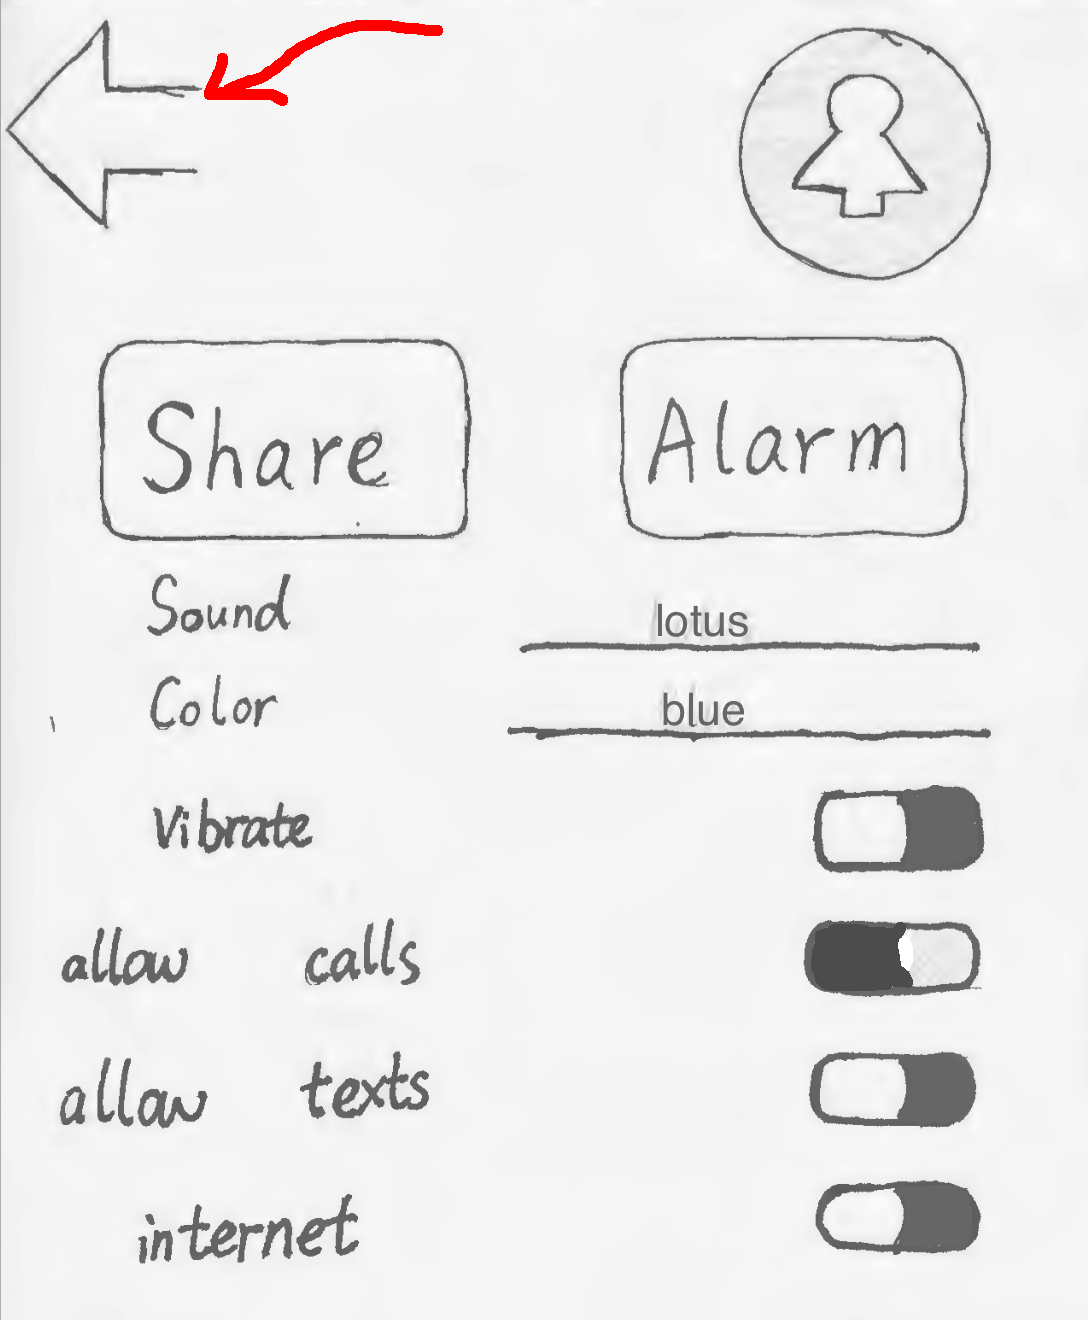 Share Alarm
Sound lotus
Color blue
Vibrate
allow calls
allow texts
internet